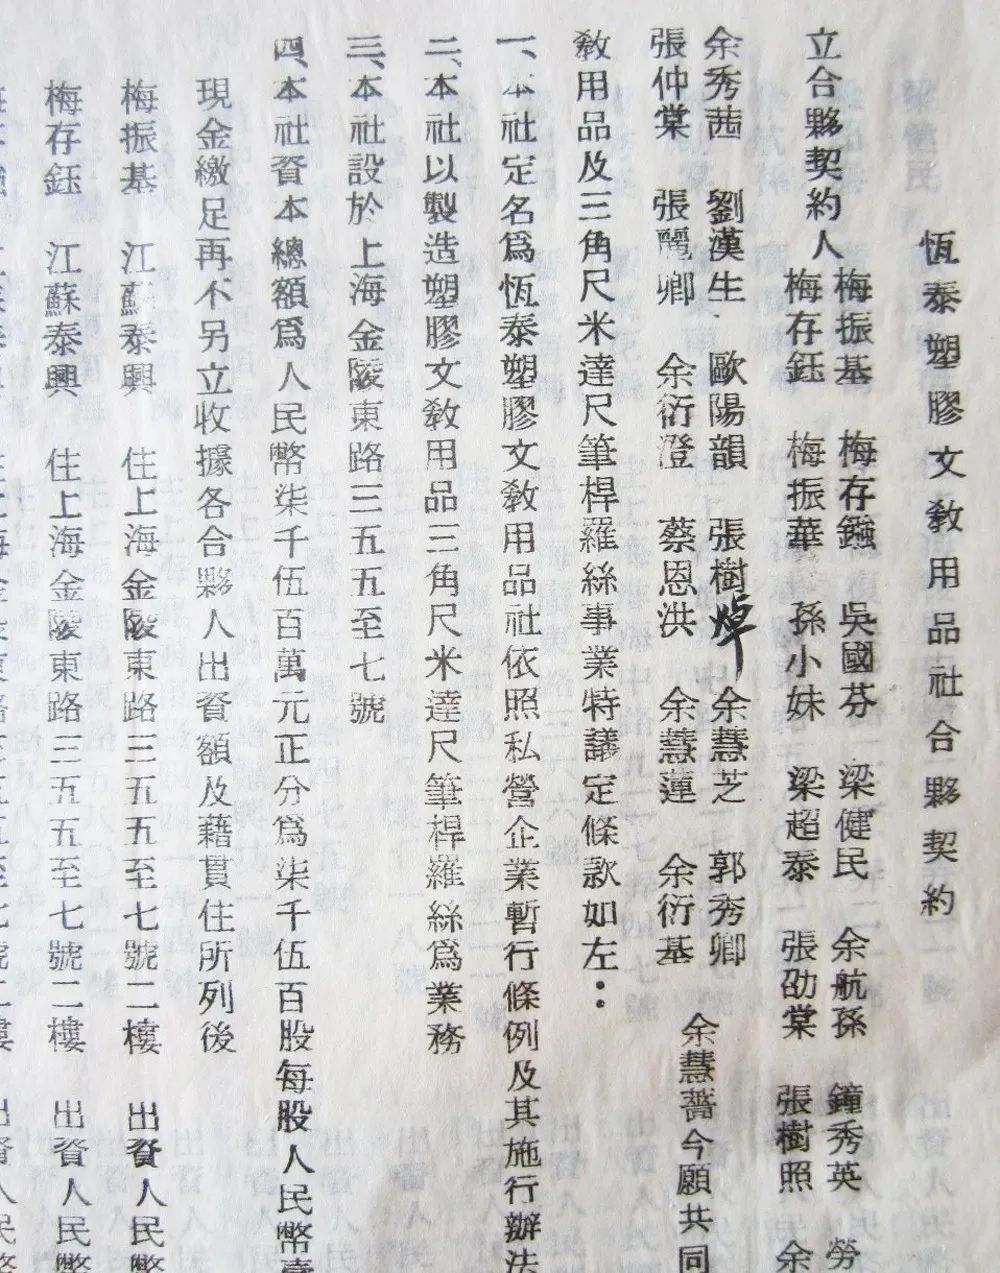 恆泰塑膠文敎用品社合夥契約
立合夥契約人
梅振基 梅存鏹 吳國芬 梁健民 余航孫 鐘秀英 勞
梅存鈺 梅振華 孫小妹 梁超泰 張劭棠 張樹照 余
余秀茜 劉漢生 歐陽韻 張樹焯 余慧芝 郭秀卿
張仲棠 張麗卿 余衍澄 蔡恩洪 余慧蓮 余衍基
余慧薔今願共同
敎用品及三角尺米達尺筆桿羅絲事業特議定條款如左：
一、本社定名爲恆泰塑膠文敎用品社依照私營企業暫行條例及其施行辦法
二、本社以製造塑膠文敎用品三角尺米達尺筆桿羅絲爲業務
三、本社設於上海金陵東路三五五至七號
四、本社資本總額爲人民幣柒千伍百萬元正分爲柒千伍百股每股人民幣壹
現金繳足再不另立收據各合夥人出資額及藉貫住所列後
梅振基 江蘇泰興 住上海金陵東路三五五至七號二樓 出資人民幣
梅存鈺 江蘇泰興 住上海金陵東路三五五至七號二樓 出資人民幣